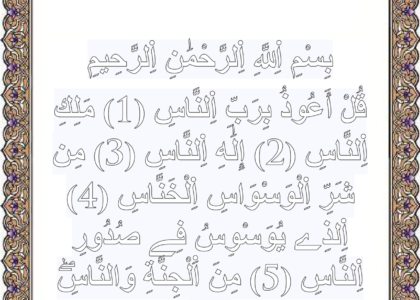 بِسْمِ اِ۬للَّهِ اِ۬لرَّحْمَٰنِ اِ۬لرَّحِيمِ
قُلْ أَعُوذُ بِرَبِّ اِ۬لنَّاسِ (1) مَلِكِ
اِ۬لنَّاسِ (2) إِلَٰهِ اِ۬لنَّاسِ (3) مِن
شَرِّ اِ۬لْوَسْوَاسِ اِ۬لْخَنَّاسِ (4)
اِ۬لذِے يُوَسْوِسُ فِے صُدُورِ
اِ۬لنَّاسِ (5) مِنَ اَ۬لْجِنَّةِ وَالنَّاسِۖ